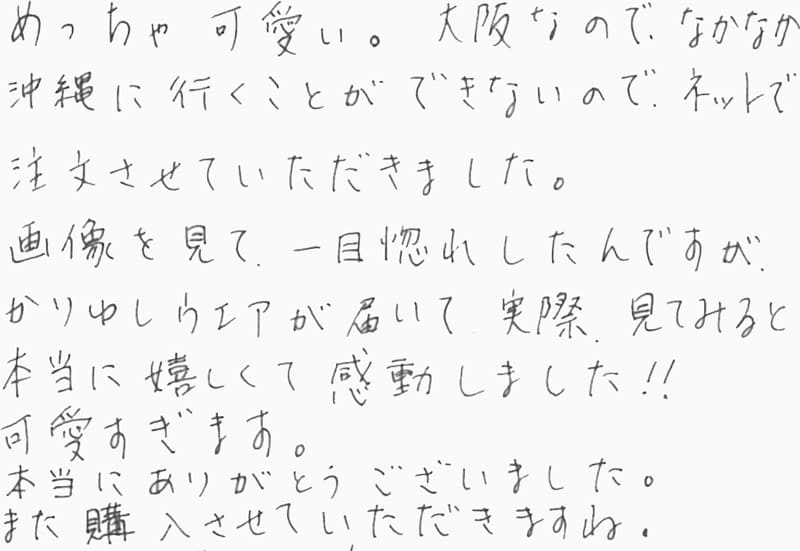 めっちゃ可愛い。大阪なので、なかなか
沖縄に行くことができないので、ネットで
注文させていただきました。
画像を見て、一目惚れしたんですが、
かりゆしウエアが届いて、実際、見てみると
本当に嬉しくて感動しました!!
可愛すぎます。
本当にありがとうございました。
また購入させていただきますね。